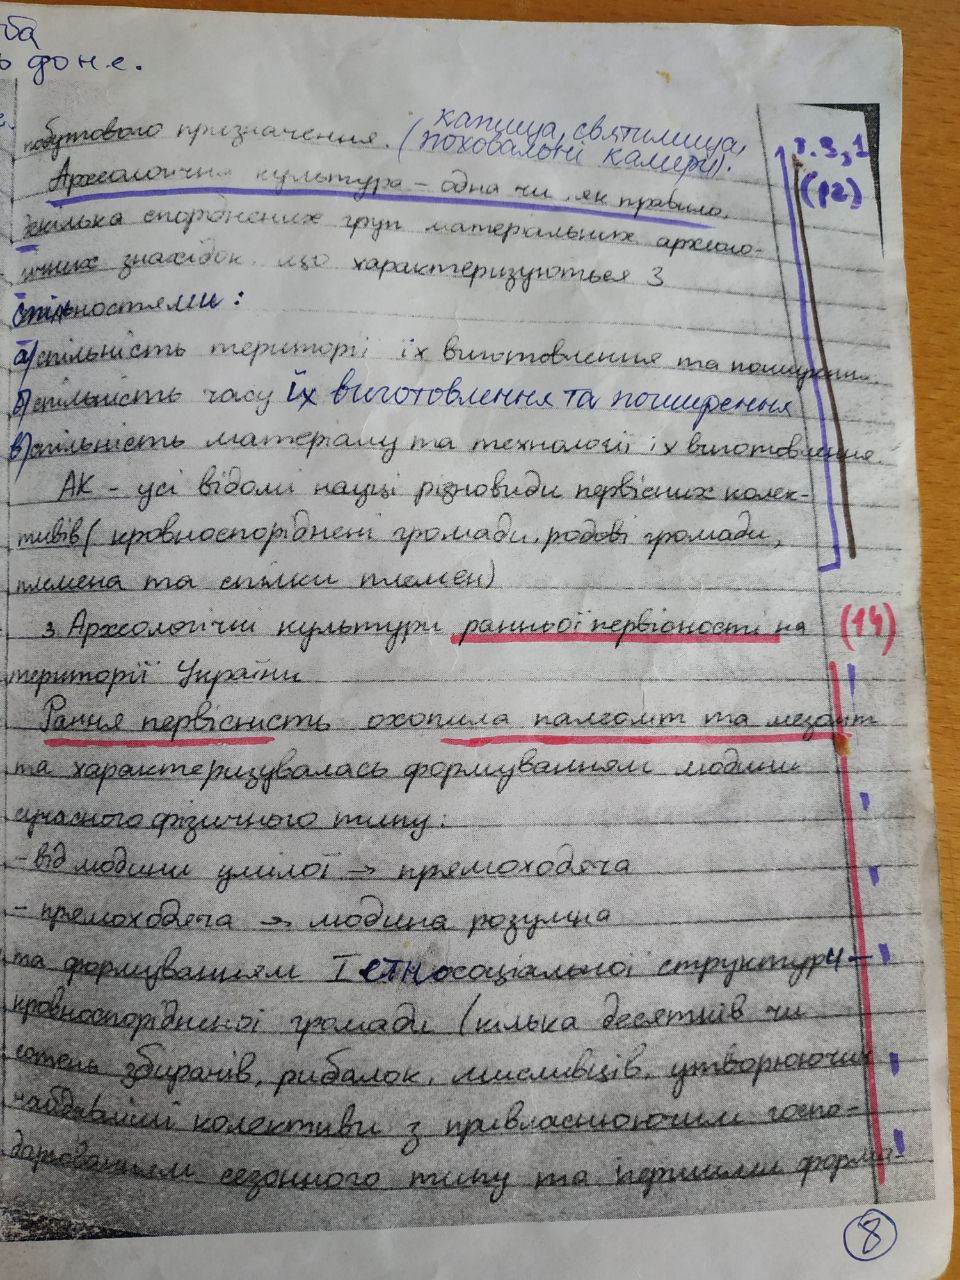 ба
ь доне.
побутового призначення. (капища, святилища,
поховальні камери).
Археологічна культура – одна чи, як правило,
кілька споріднених груп матеріальних археоло-
ічних знахідок, що характеризуються 3
спільностями:
а) спільність території їх виготовлення та поширення.
б) спільність часу їх виготовлення та поширення
в) спільність матеріалу та технології їх виготовлення.
АК – усі відомі науці різновиди первісних колек-
тивів (кровноспоріднені громади, родові громади,
племена та спілки племен)
3. Археологічні культури ранньої первісності на
території України
Рання первісність охопила палеоліт та мезоліт
та характеризувалась формуванням людини
сучасного фізичного типу:
– від людини умілої → прямоходяча
– прямоходяча → людина розумна
та формуванням I етносоціальної структури –
кровноспорідненої громади (кілька десятків чи
сотень збирачів, рибалок, мисливців, утворюючих
найдавніші колективи з привласнюючим госпо-
дарюванням сезонного типу та першими форма-
т.3,1
(р2)
(14)
8